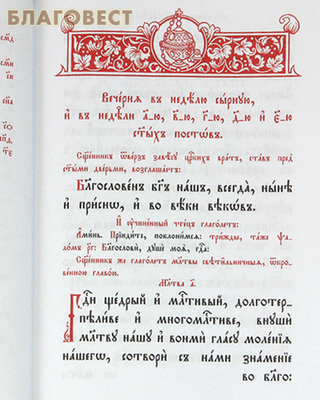 БЛАГОВЕСТ
Вече́рнѧ въ недѣ́лю сы́рную,
и҆ въ недѣ́ли а҃-ю, в҃-ю, г҃-ю, д҃-ю и҆ є҃-ю
ст҃ы́хъ посто́въ.
Сщ҃е́нникъ ѿве́рзъ завѣ́су цр҃ки́хъ вра́тъ, ста́въ пред
ст҃ы́ми две́рьми, возглаша́етъ:
Бл҃гослове́нъ бг҃ъ на́шъ, всегда̀, ны́нѣ
и҆ при́снѡ, и҆ во вѣ́ки вѣкѡ́въ.
И҆ ᲂу҆чине́нный чте́цъ глаго́летъ:
А҆ми́нь. Прїиди́те, поклони́мсѧ: три́жды, та́же ѱа-
ло́мъ рг҃: Благословѝ, дꙋшѐ моѧ̀, гд҇а:
Сщ҃е́нникъ же глаго́летъ мл҃твы свѣти́льничныѧ, ѿкро-
ве́нною главо́ю.
Мл҃тва а҃.
Гд҇и ще́дрый и҆ мл҇тивый, долготер-
пѣли́ве и҆ многомл҇тиве, внꙋшѝ
мл҃твꙋ на́шꙋ и҆ вонмѝ гла́сꙋ моле́нїѧ
на́шегѡ, сотворѝ съ на́ми зна́менїе
во бл҃го: